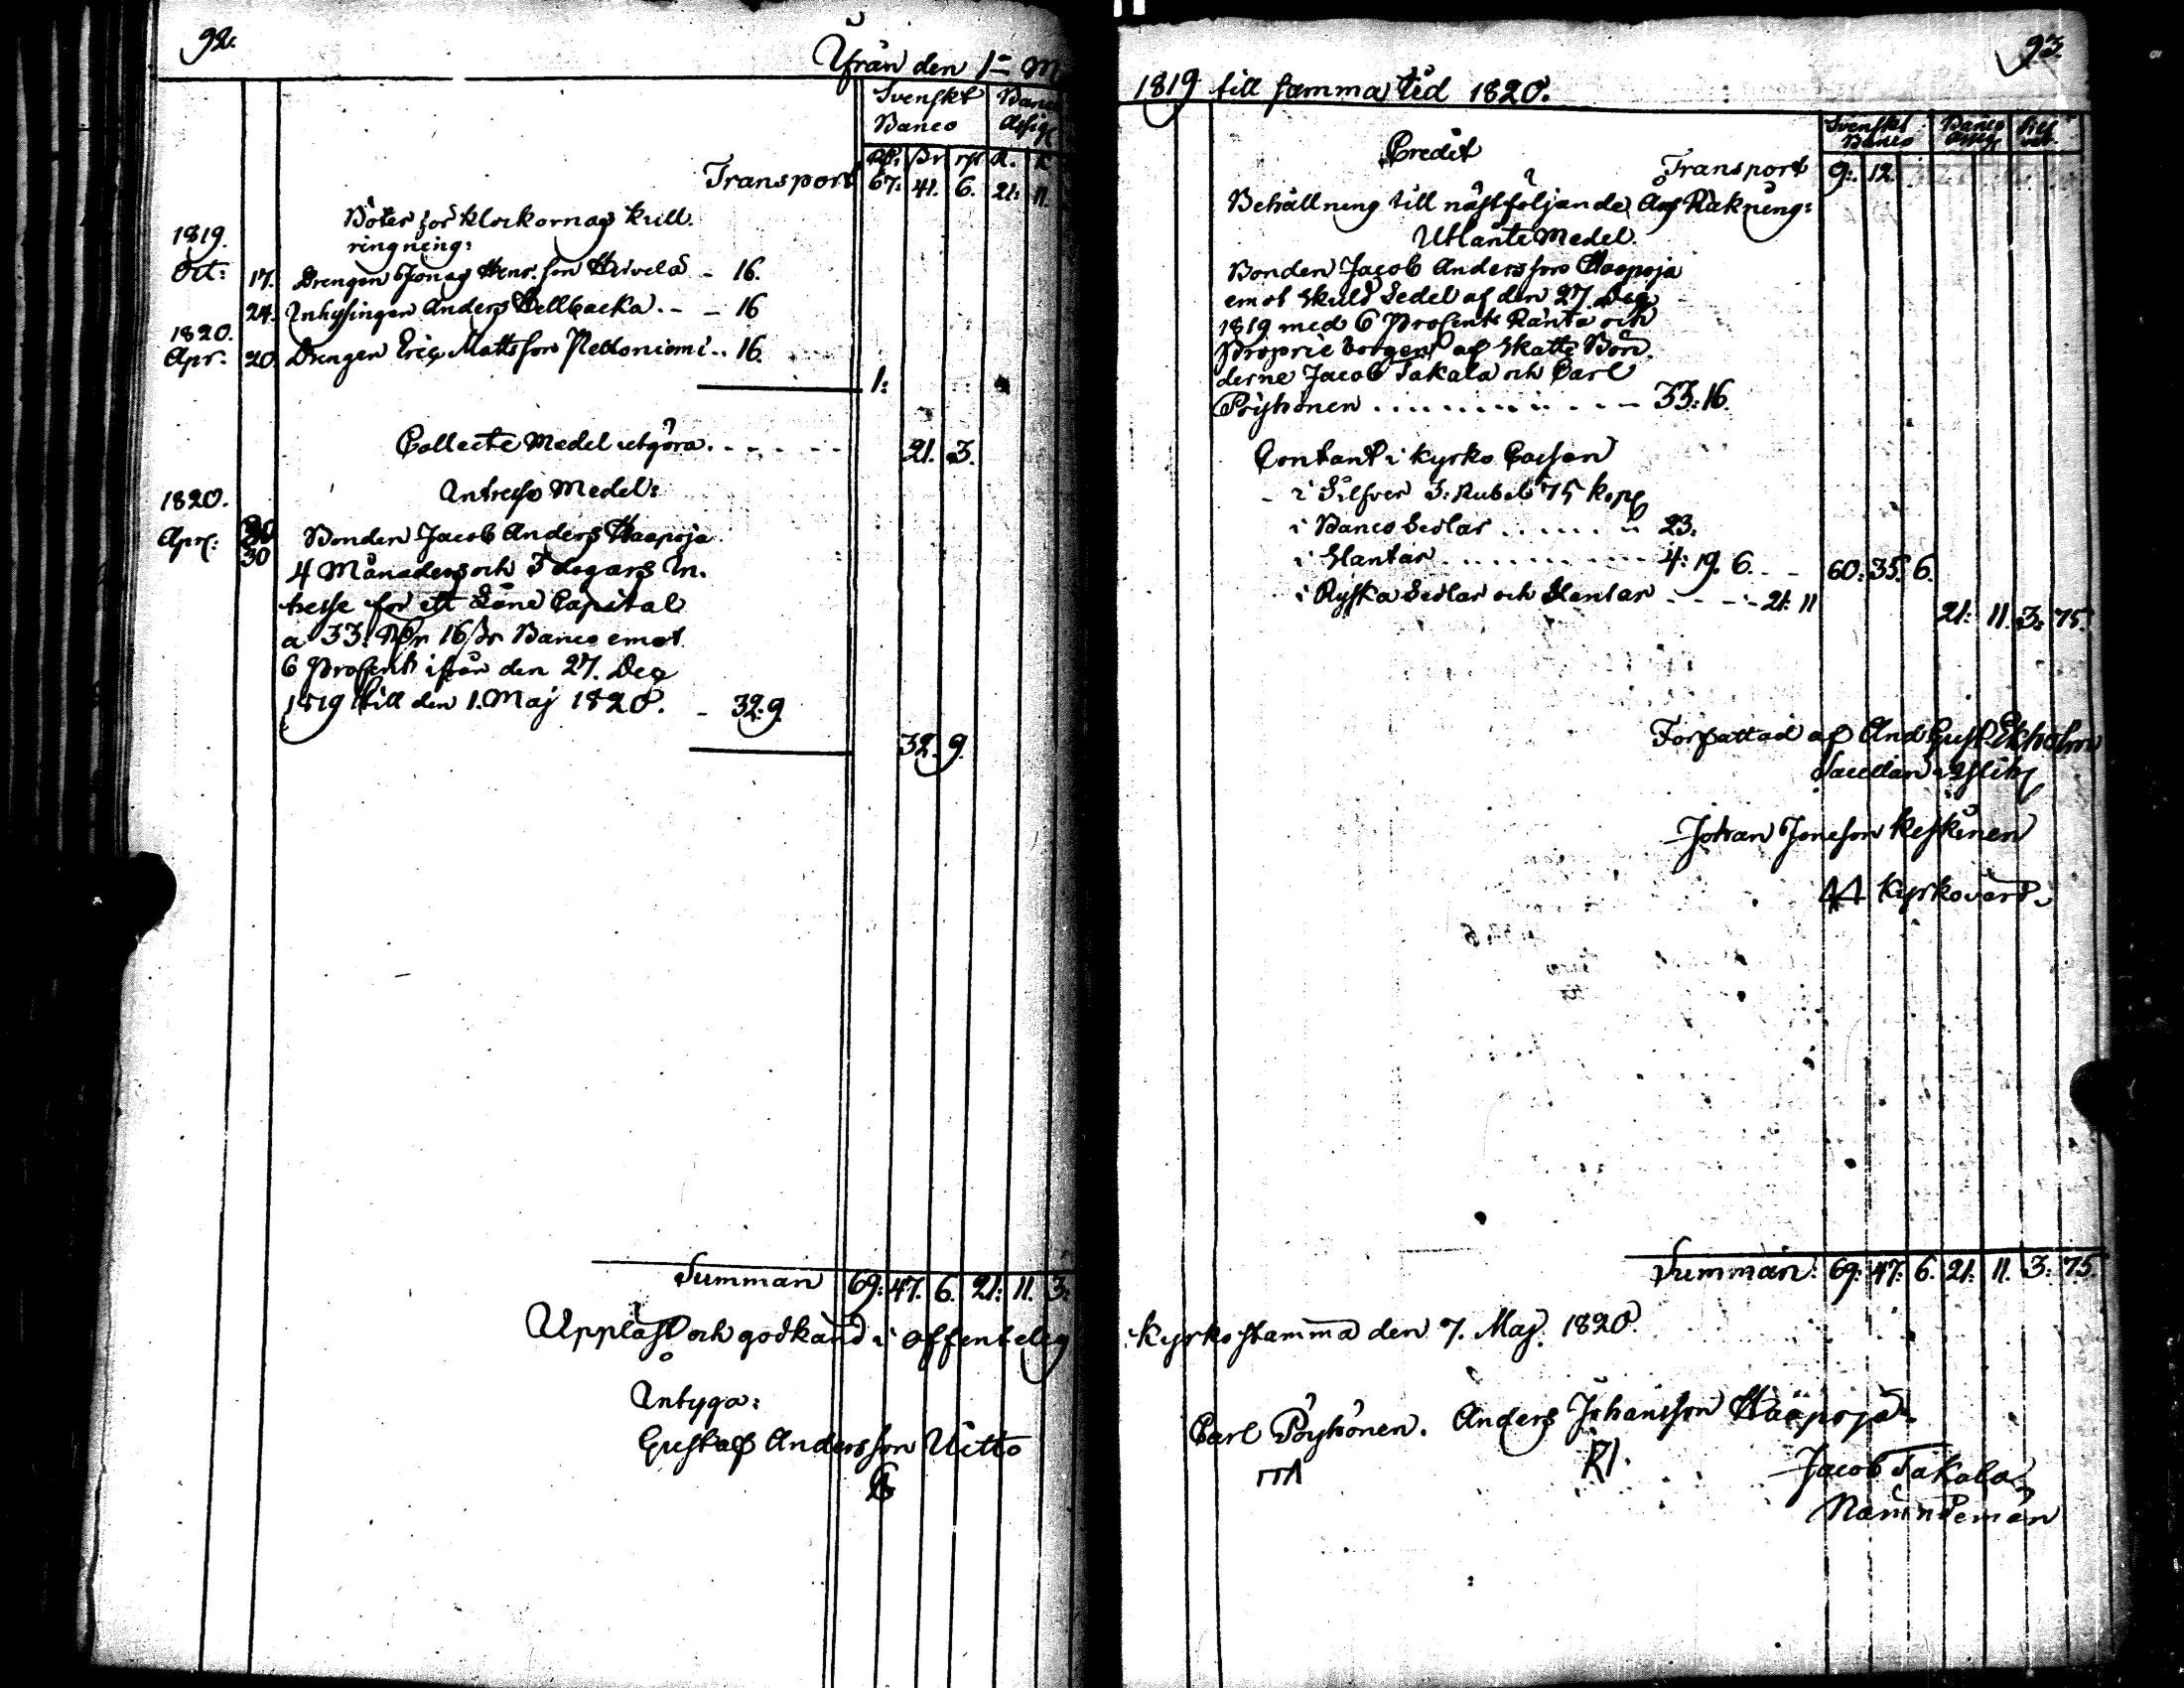 92.
Ifrån den 1= M
Svenskt Banco
Banco Assig:
Rdr ßr rst R. K
Transport 67: 41. 6. 21: 11.
Böter för klockornas kull
ringning:
1819.
Oct: 17. Drengen Jonas Henr:son Hirvelä - 16.
24. Inhysingen Anders Hellbacka. - - 16
1820.
Apr. 20. Drengen Eric Mattsson Niemi .. 16.
1:
Collecte Medel utgöra. - - - - - 21. 3.
1820. Intresse Medel:
Apr: 30 Bonden Jacob Anders Haapoja
4 Månaders och 3 dagars In-
tresse för ett Låne Capital
a 33: Rdr 16 ßr Banco emot
6 Procent ifrån den 27. Dec
1819 till den 1. Maj 1820. - 32:9.
32. 9.
Summan 69: 47. 6. 21: 11. 3:
Uppläst och godkänd i offentelig
Intyga:
Gustaf Andersson Uitto
93.
1819 till samma tid 1820.
Svenskt Banco Banco Assig: Silf ver.
Credit
Transport 9:. 12.
Behållning till nästföljande års Räkning:
Utlänte Medel.
Bonden Jacob Andersson Haapoja
emot Skuld Sedel af den 27. Dec
1819 med 6 Procents Ränta och
Proprie borgen af Skatte Bön-
derne Jacob Takala och Carl
Pöyhönen . . . . . . . . . - - 33:16.
Contant i Kyrko Cassan
- i Silfver 3: Rubel 75 kop:
i Banco Sedlar . . . . . . 23.
i Slantar . . . . . . . . 4: 19. 6. - - 60: 35. 6.
i Ryska Sedlar och Slantar - - - - 21: 11 21: 11. 3: 75.
Författad af And Gust. Ekholm
Sacellan i
Johan Jonesson Keskinen
Kyrkovärd.
Summan: 69: 47: 6. 21: 11. 3: 75.
Kyrkostämma den 7. Maj. 1820.
Carl Pöyhönen. Anders Johansson Haapoja
Jacob Takala
Nämndeman